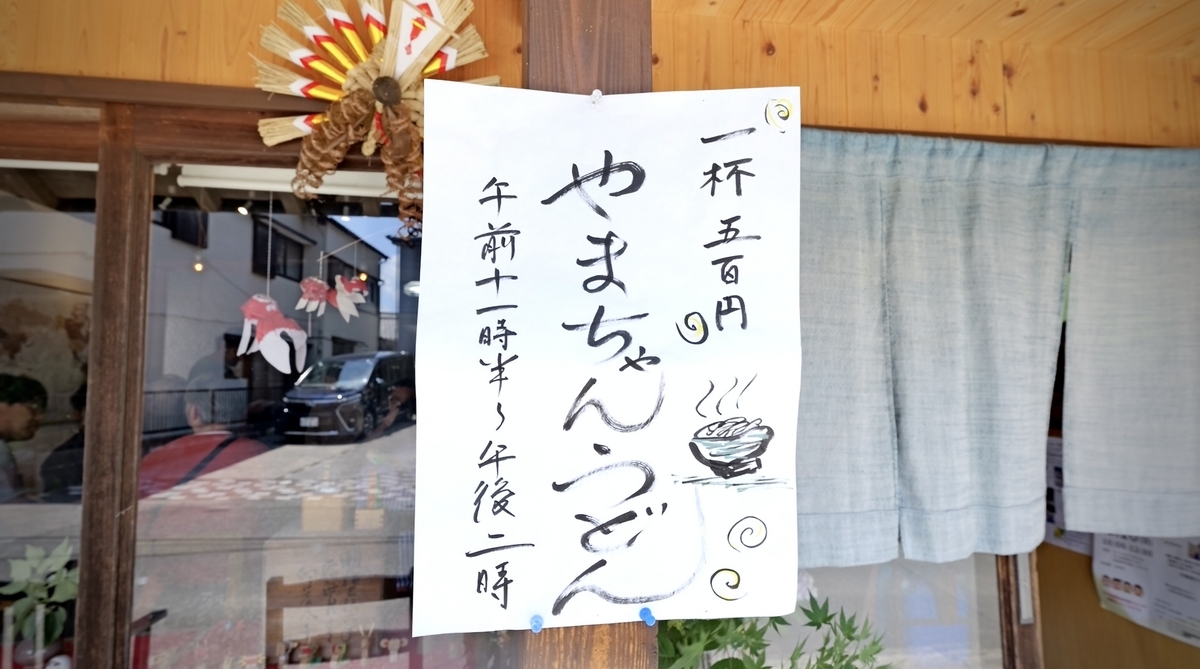 一杯 五百円
やまちゃんうどん
午前十一時半～午後二時